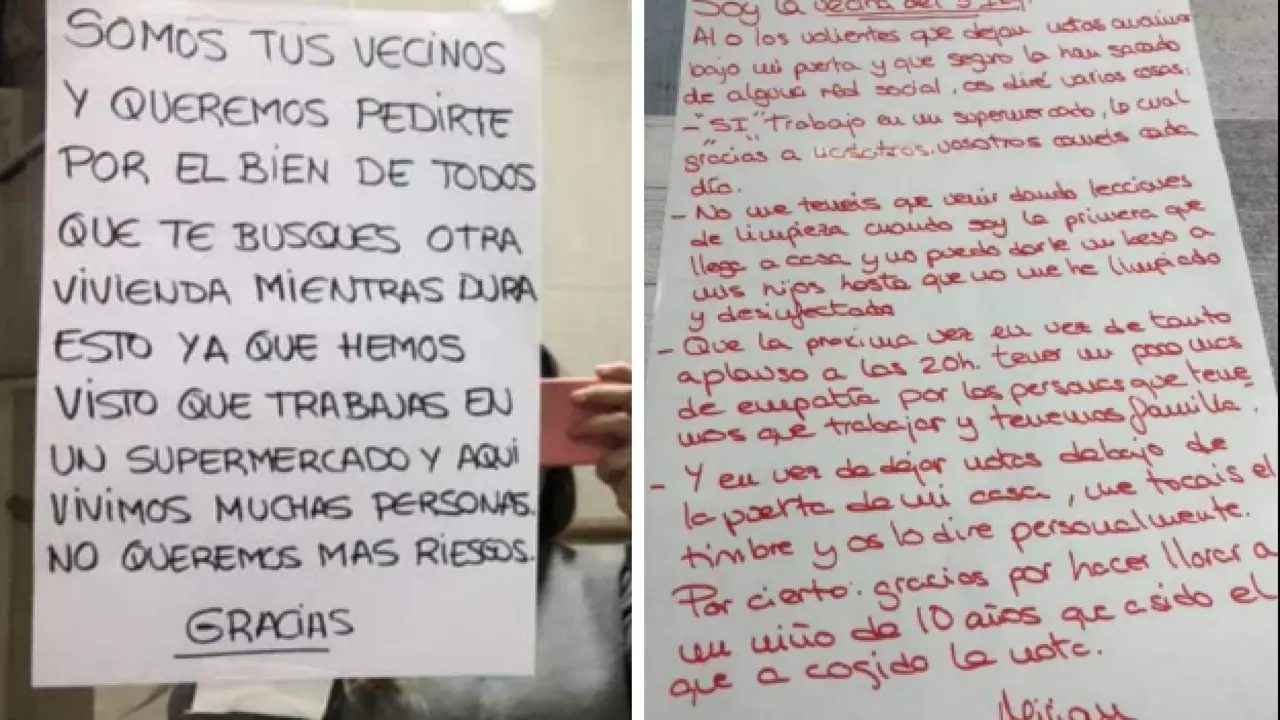 SOMOS TUS VECINOS
Y QUEREMOS PEDIRTE
POR EL BIEN DE TODOS
QUE TE BUSQUES OTRA
VIVIENDA MIENTRAS DURA
ESTO YA QUE HEMOS
VISTO QUE TRABAJAS EN
UN SUPERMERCADO Y AQUI
VIVIMOS MUCHAS PERSONAS.
NO QUEREMOS MAS RIESGOS.
GRACIAS
Soy la vecina del
Al o los valientes que dejan notas
bajo mi puerta y que seguro la han sacado
de alguna red social, os diré varias cosas:
- "SI" Trabajo en un supermercado, lo cual
gracias a nosotros, vosotros comeis cada
día.
- No me teneis que venir dando lecciones
de limpieza cuando soy la primera que
llega a casa y no puedo darle un beso a
mis hijos hasta que no me he limpiado
y desinfectado
- Que la proxima vez en vez de tanto
aplauso a las 20h. tener un poco mas
de empatía por las personas que tene
mos que trabajar y tenemos familia.
- Y en vez de dejar notas debajo de
la puerta de mi casa, me tocais el
timbre y os lo dire personalmente.
Por cierto: gracias por hacer llorar a
un niño de 10 años que a sido el
que a cogido la nota.
Miriam